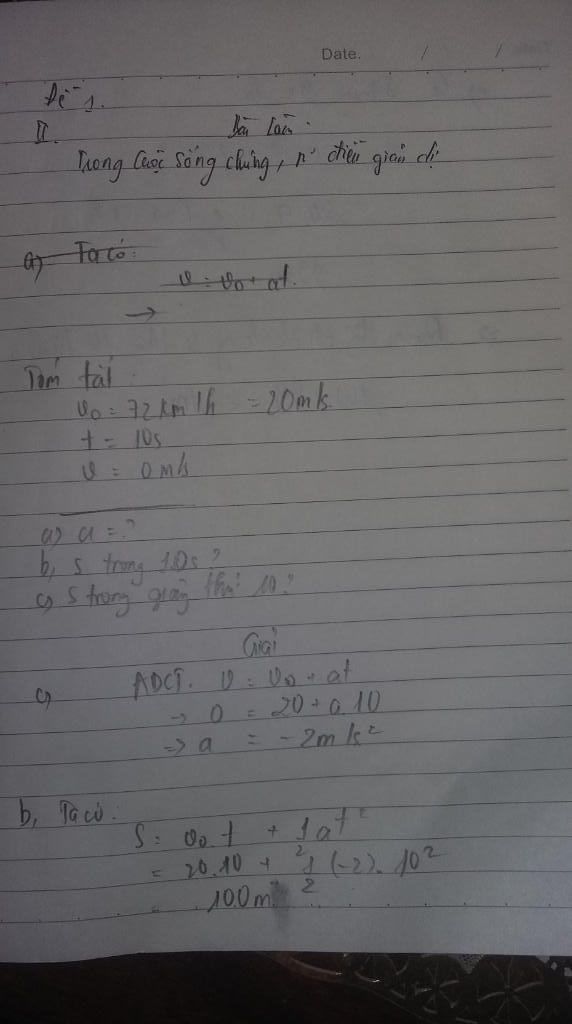 Date. / /
Đề 1.
II. Bài làm.
Trong cuộc sống chúng, n điều giản dị
a) Ta có:
v = v0 + at.
→
Tóm tắt:
v0 = 72 km/h = 20m/s.
t = 10s
v = 0 m/s
a) a = ?
b, s trong 10s?
c) s trong giây thứ 10?
Giải
a) ADCT. v = v0 + at
→ 0 = 20 + a.10
=> a = -2m/s²
b, Ta có:
S = v0.t + 1/2 at²
= 20.10 + 1/2 (-2). 10²
= 100m